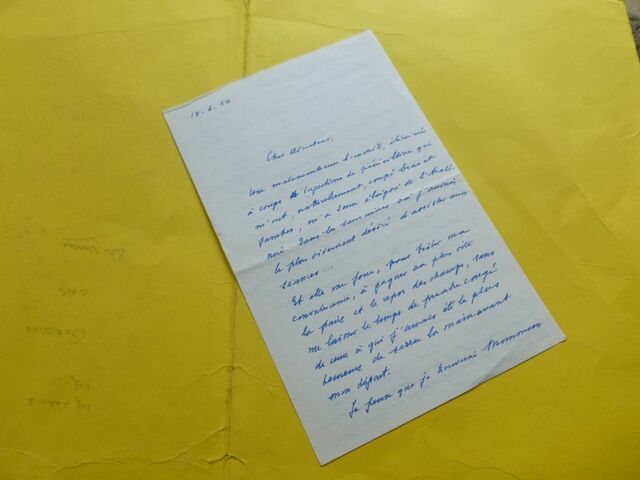 18-6-50
Cher Directeur,
Une malencontreuse , éliminée
à coups d'injections de pénicilline qui
m'ont, naturellement, coupé bras et
jambes, m'a tenu éloigné de l'
dans les semaines où j'aurais
le plus vivement désiré d'assister aux
séances...
Et elle me force, pour hâter ma
convalescence, à gagner au plus vite
la paix et le repos des champs, sans
me laisser le temps de prendre congé
de ceux à qui j'aurais été le plus
heureux de serrer la main avant
mon départ.
Je pense que je trouverai